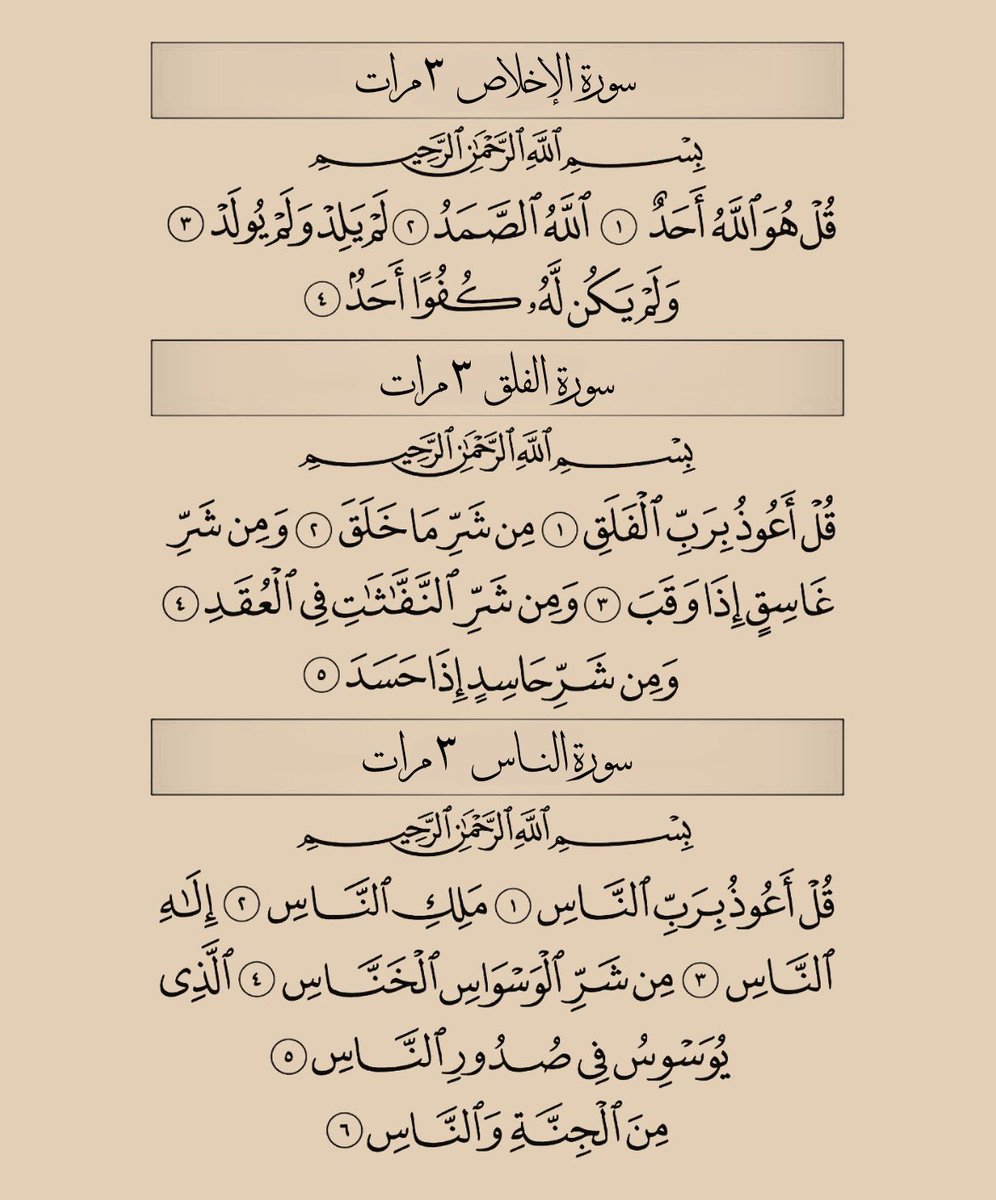 سورة الإخلاص ٣ مرات
بِسْمِ ٱللَّهِ ٱلرَّحْمَٰنِ ٱلرَّحِيمِ
قُلْ هُوَ ٱللَّهُ أَحَدٌ ١ ٱللَّهُ ٱلصَّمَدُ ٢ لَمْ يَلِدْ وَلَمْ يُولَدْ ٣
وَلَمْ يَكُن لَّهُۥ كُفُوًا أَحَدٌۢ ٤
سورة الفلق ٣ مرات
بِسْمِ ٱللَّهِ ٱلرَّحْمَٰنِ ٱلرَّحِيمِ
قُلْ أَعُوذُ بِرَبِّ ٱلْفَلَقِ ١ مِن شَرِّ مَا خَلَقَ ٢ وَمِن شَرِّ
غَاسِقٍ إِذَا وَقَبَ ٣ وَمِن شَرِّ ٱلنَّفَّٰثَٰتِ فِى ٱلْعُقَدِ ٤
وَمِن شَرِّ حَاسِدٍ إِذَا حَسَدَ ٥
سورة الناس ٣ مرات
بِسْمِ ٱللَّهِ ٱلرَّحْمَٰنِ ٱلرَّحِيمِ
قُلْ أَعُوذُ بِرَبِّ ٱلنَّاسِ ١ مَلِكِ ٱلنَّاسِ ٢ إِلَٰهِ
ٱلنَّاسِ ٣ مِن شَرِّ ٱلْوَسْوَاسِ ٱلْخَنَّاسِ ٤ ٱلَّذِى
يُوَسْوِسُ فِى صُدُورِ ٱلنَّاسِ ٥
مِنَ ٱلْجِنَّةِ وَٱلنَّاسِ ٦